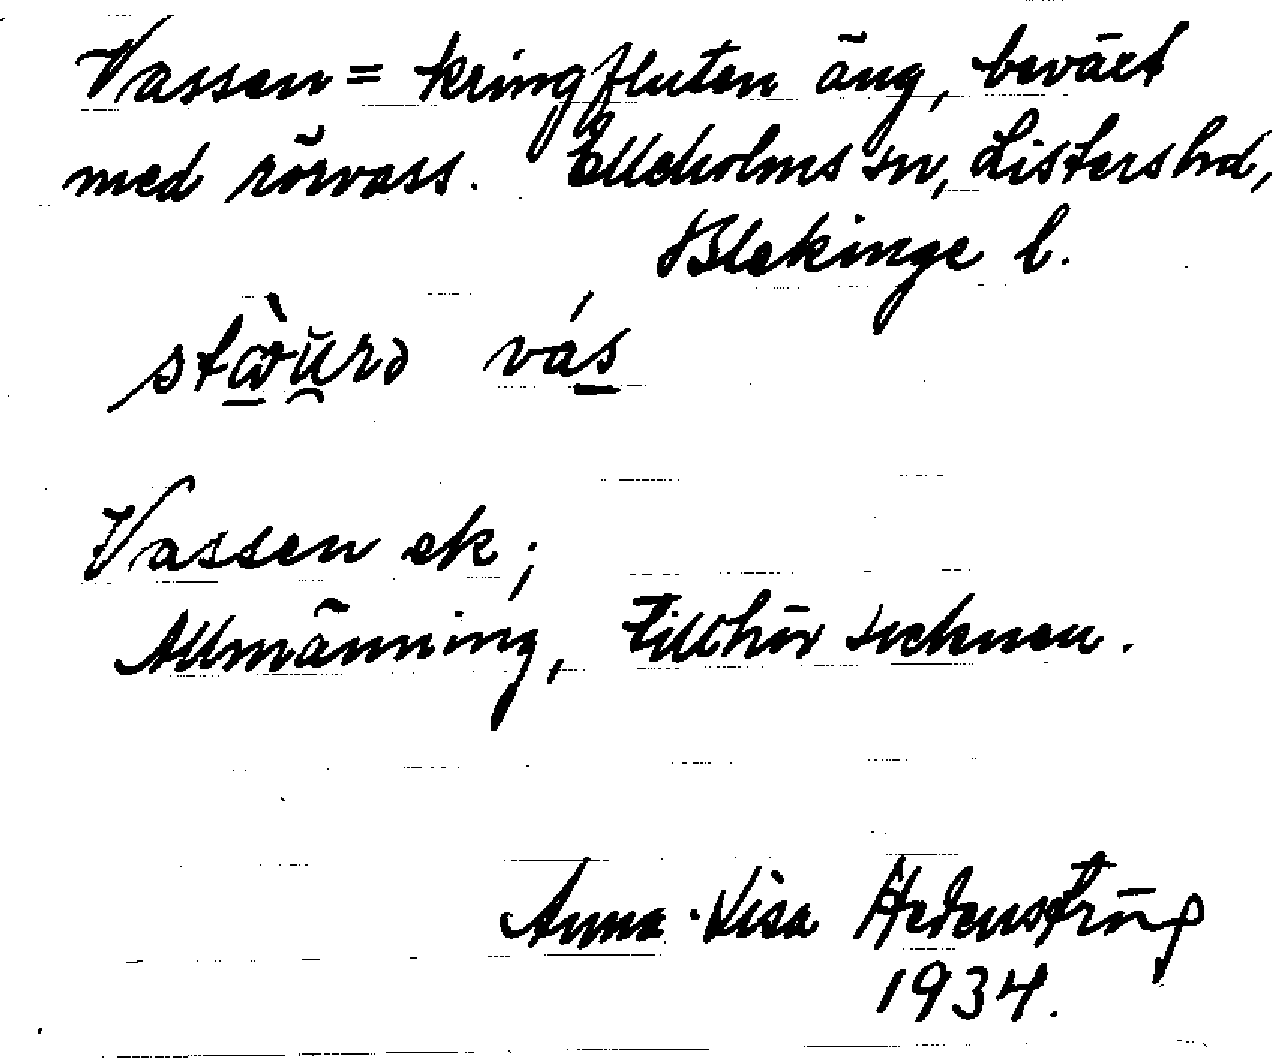 Vassen = kringfluten äng, beväxt
med rörvass. Elleholms sn, Listers hd,
Blekinge l.
vás
Vassen ek;
Allmänning, tillhör socknen.
Anna-Lisa Hedenström
1934.